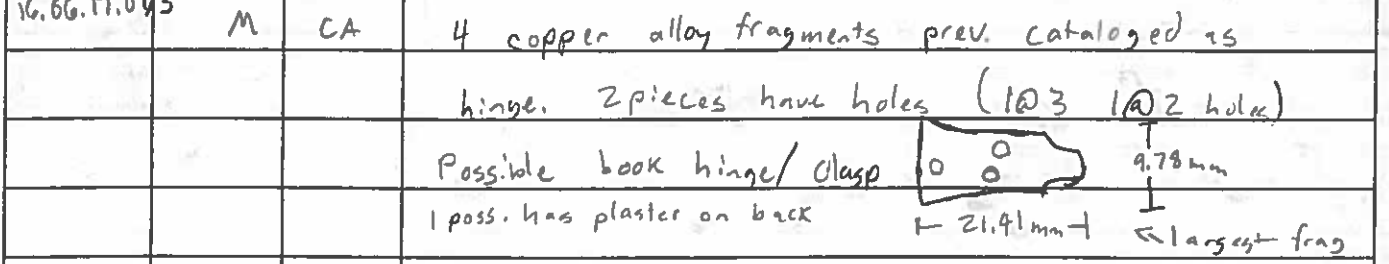 16.06.17.043 M CA 4 copper alloy fragments prev. cataloged as
hinge. 2 pieces have holes (1@3 1@2 holes)
Possible book hinge/clasp 9.78mm
1 poss. has plaster on back 21.41mm largest frag